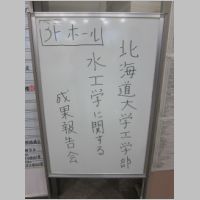 3F ホール
北海道大学工学部
水工学に関する
成果報告会